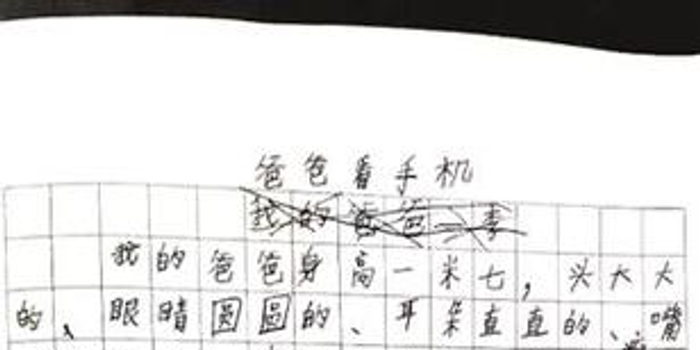 爸爸看手机
我的爸爸
我的爸爸身高一米七，头大大
的、眼睛圆圆的、耳朵直直的、嘴